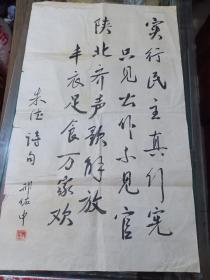 实行民主真行宪
只见公仆不见官
陕北齐声歌解放
丰衣足食万家欢
朱德诗句